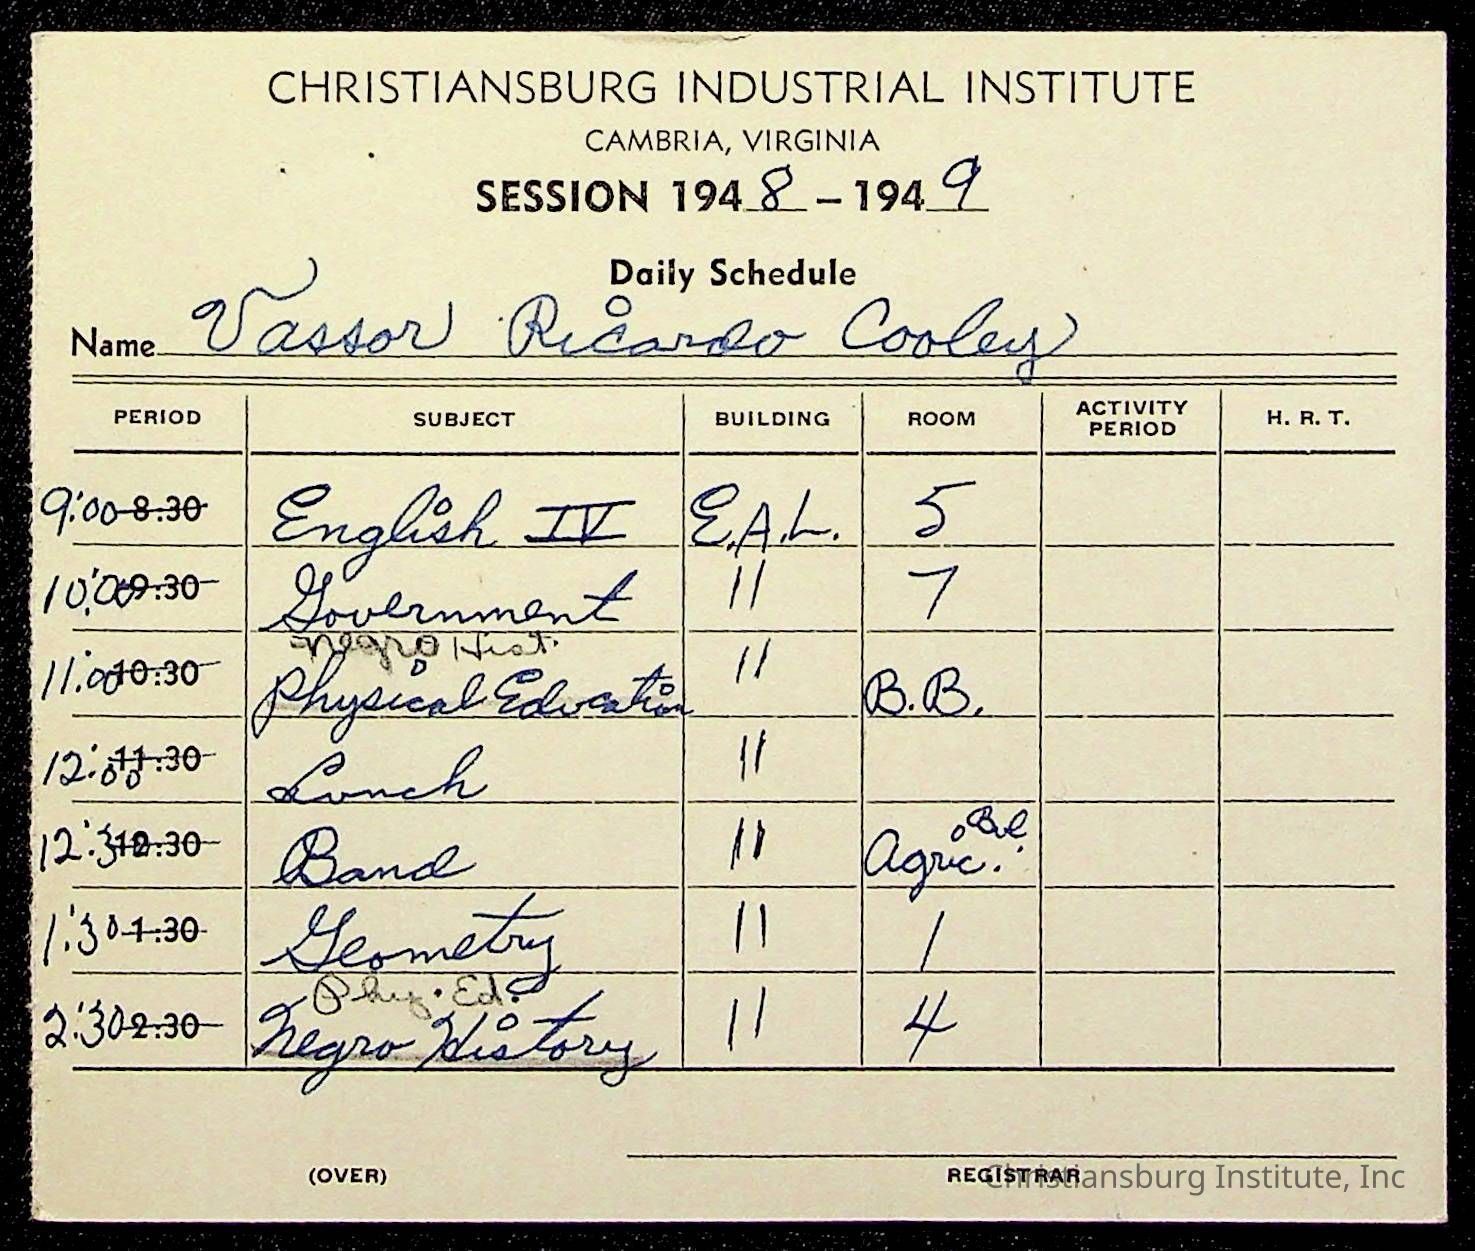 CHRISTIANSBURG INDUSTRIAL INSTITUTE
CAMBRIA, VIRGINIA
SESSION 1948 – 1949
Daily Schedule
Name Vassor Ricardo Cooley
PERIOD SUBJECT BUILDING ROOM ACTIVITY PERIOD H. R. T.
9:00 8:30 English IV E.A.L. 5
10:00 9:30 Government 11 7
Negro Hist.
11:00 10:30 Physical Education 11 B.B.
12:00 11:30 Lunch 11
12:30 12:30 Band 11 Agric.
1:30 1:30 Geometry 11 1
Phy. Ed.
2:30 2:30 Negro History 11 4
(OVER) REGISTRAR
Christiansburg Institute, Inc